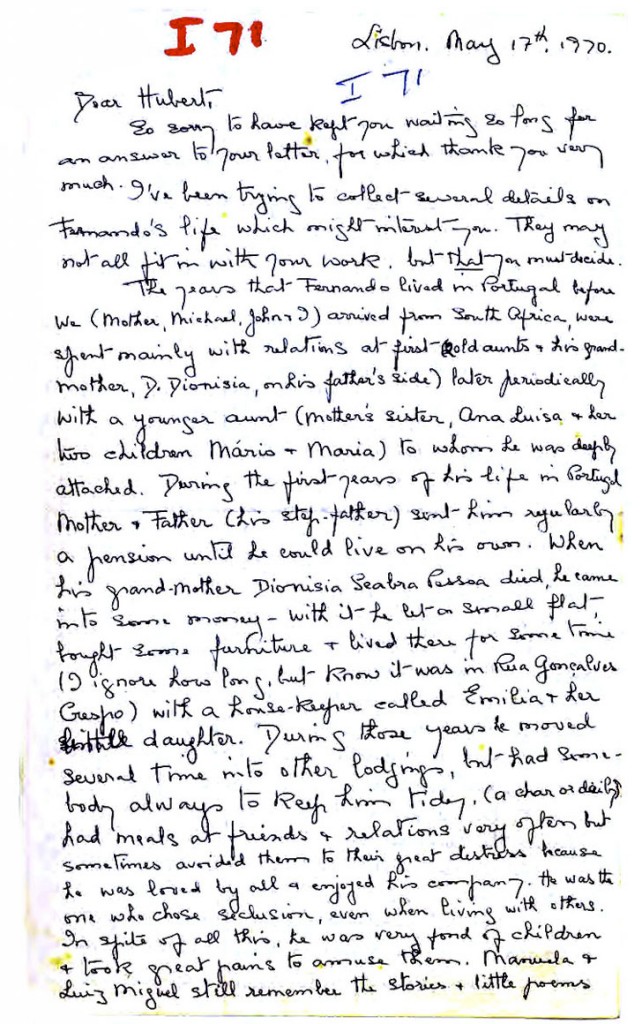 I 71
Lisbon. May 17th. 1970.
I 71
Dear Hubert,
So sorry to have kept you waiting so long for
an answer to your letter, for which thank you very
much. I've been trying to collect several details on
Fernando's life which might interest you. They may
not all fit in with your work, but that you must decide.
The years that Fernando lived in Portugal before
we (Mother, Michael, John + I) arrived from South Africa, were
spent mainly with relations at first (old aunts + his grand-
mother, D. Dionisia, on his father's side) later periodically
with a younger aunt (Mother's sister, Ana Luisa + her
two children Mário + Maria) to whom he was deeply
attached. During the first years of his life in Portugal
Mother + Father (his step-father) sent him regularly
a pension until he could live on his own. When
his grand-mother Dionisia Seabra Pessoa died, he came
into some money - with it he let a small flat,
bought some furniture + lived there for some time
(I ignore how long, but know it was in Rua Gonçalves
Crespo) with a house-keeper called Emilia + her
daughter. During those years he moved
several time into other lodgings, but had some-
body always to keep him tidy, (a char or daily)
had meals at friends + relations very often but
sometimes avoided them to their great distress because
he was loved by all + enjoyed his company. He was the
one who chose seclusion, even when living with others.
In spite of all this, he was very fond of children
+ took great pains to amuse them. Manuela +
Luiz Miguel still remember the stories + little poems